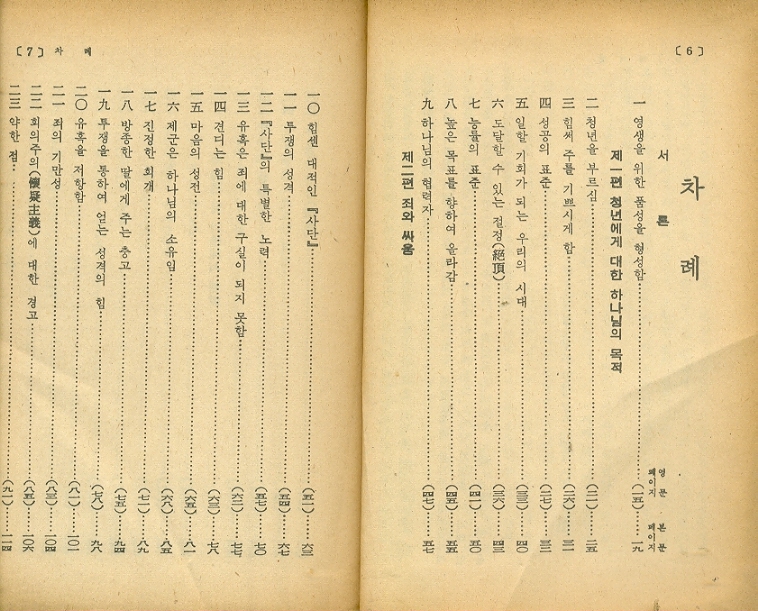 〔6〕
차례
영문 페이지
본문 페이지
서론
一 영생을 위한 품성을 형성함 (一五) 一九
제一편 청년에게 대한 하나님의 목적
二 청년을 부르심 (二一) 二五
三 힘써 주를 기쁘시게 함 (二六) 三一
四 성공의 표준 (二七) 三三
五 일할 기회가 되는 우리의 시대 (三三) 四〇
六 도달할 수 있는 절정(絕頂) (三六) 四三
七 능률의 표준 (四一) 五〇
八 높은 목표를 향하여 올라감 (四五) 五五
九 하나님의 협력자 (四七) 五七
제二편 죄와 싸움
〔7〕 차 례
一〇 힘센 대적인 『사단』 (五一) 六三
一一 투쟁의 성격 (五四) 六七
一二 『사단』의 특별한 노력 (五七) 七〇
一三 유혹은 죄에 대한 구실이 되지 못함 (六二) 七七
一四 견디는 힘 (六三) 七八
一五 마음의 성전 (六五) 八一
一六 제군은 하나님의 소유임 (六八) 八五
一七 진정한 회개 (七一) 八九
一八 방종한 딸에게 주는 충고 (七五) 九四
一九 투쟁을 통하여 얻는 성격의 힘 (七八) 九八
二〇 유혹을 저항함 (八一) 一〇一
二一 죄의 기만성 (八三) 一〇四
二二 회의주의(懷疑主義)에 대한 경고 (八五) 一〇六
二三 약한 점 (九一) 一一四